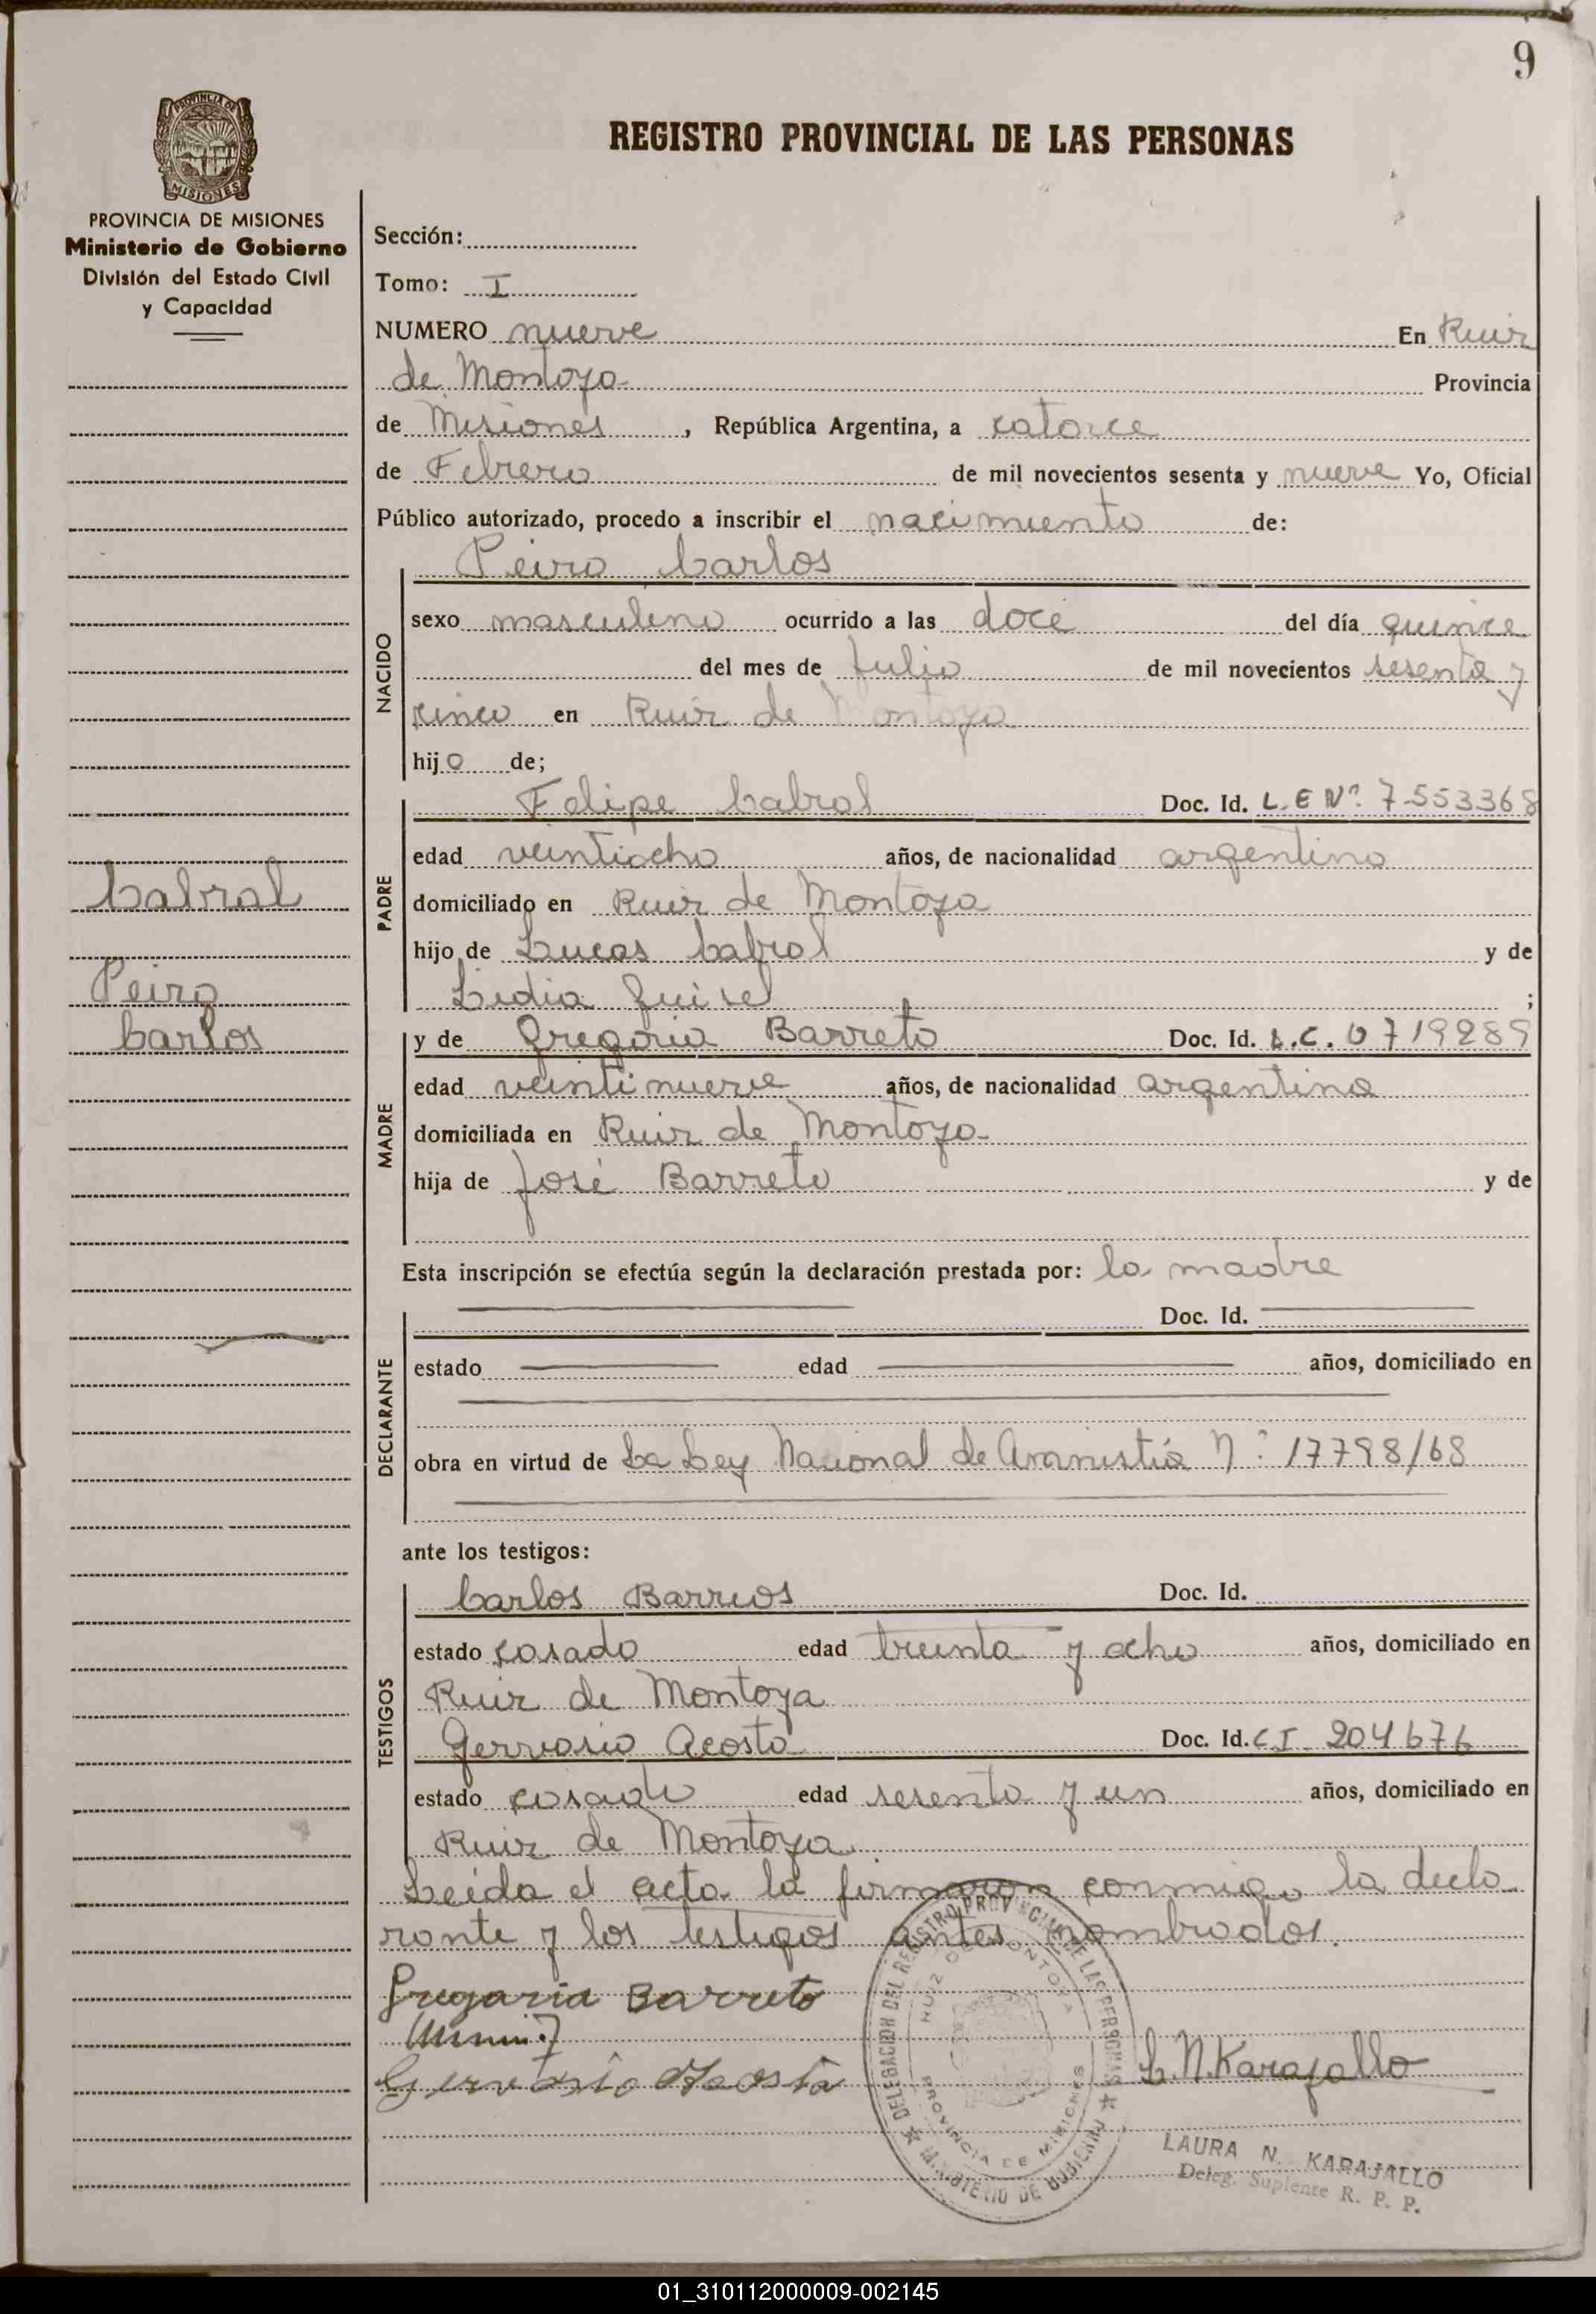 9
REGISTRO PROVINCIAL DE LAS PERSONAS
PROVINCIA DE MISIONES
Ministerio de Gobierno
División del Estado Civil
y Capacidad
Sección:
Tomo: I
NUMERO nueve En Ruiz
de Montoya Provincia
de Misiones, República Argentina, a catorce
de Febrero de mil novecientos sesenta y nueve Yo, Oficial
Público autorizado, procedo a inscribir el nacimiento de:
Peiro Carlos
NACIDO
sexo masculino ocurrido a las doce del día quince
del mes de Julio de mil novecientos sesenta y
cinco en Ruiz de Montoya
hijo de;
Felipe Cabral Doc. Id. L.E Nº 7553368
PADRE
edad veintiocho años, de nacionalidad argentino
domiciliado en Ruiz de Montoya
hijo de Lucas Cabral y de
Lidia ;
y de Gregoria Barreto Doc. Id. L.C. 0719289
MADRE
edad veintinueve años, de nacionalidad argentina
domiciliada en Ruiz de Montoya
hija de José Barreto y de
Cabral
Peiro
Carlos
Esta inscripción se efectúa según la declaración prestada por: la madre
Doc. Id.
DECLARANTE
estado edad años, domiciliado en
obra en virtud de La Ley Nacional de Amnistía N° 17798/68
ante los testigos:
Carlos Barrios Doc. Id.
TESTIGOS
estado casado edad treinta y ocho años, domiciliado en
Ruiz de Montoya
Gervasio Acosta Doc. Id. C I. 204676
estado casado edad sesenta y un años, domiciliado en
Ruiz de Montoya
Leída el acta la firmaron conmigo la decla
rante y los testigos antes nombrados.
Gregaria Barreto
Gervasio Acosta
L.N.Karajallo
DELEGACION DEL REGISTRO PROVINCIAL DE LAS PERSONAS
RUIZ DE MONTOYA
PROVINCIA DE MISIONES
MINISTERIO DE GOBIERNO
LAURA N. KARAJALLO
Deleg. Suplente R. P. P.
01_310112000009-002145